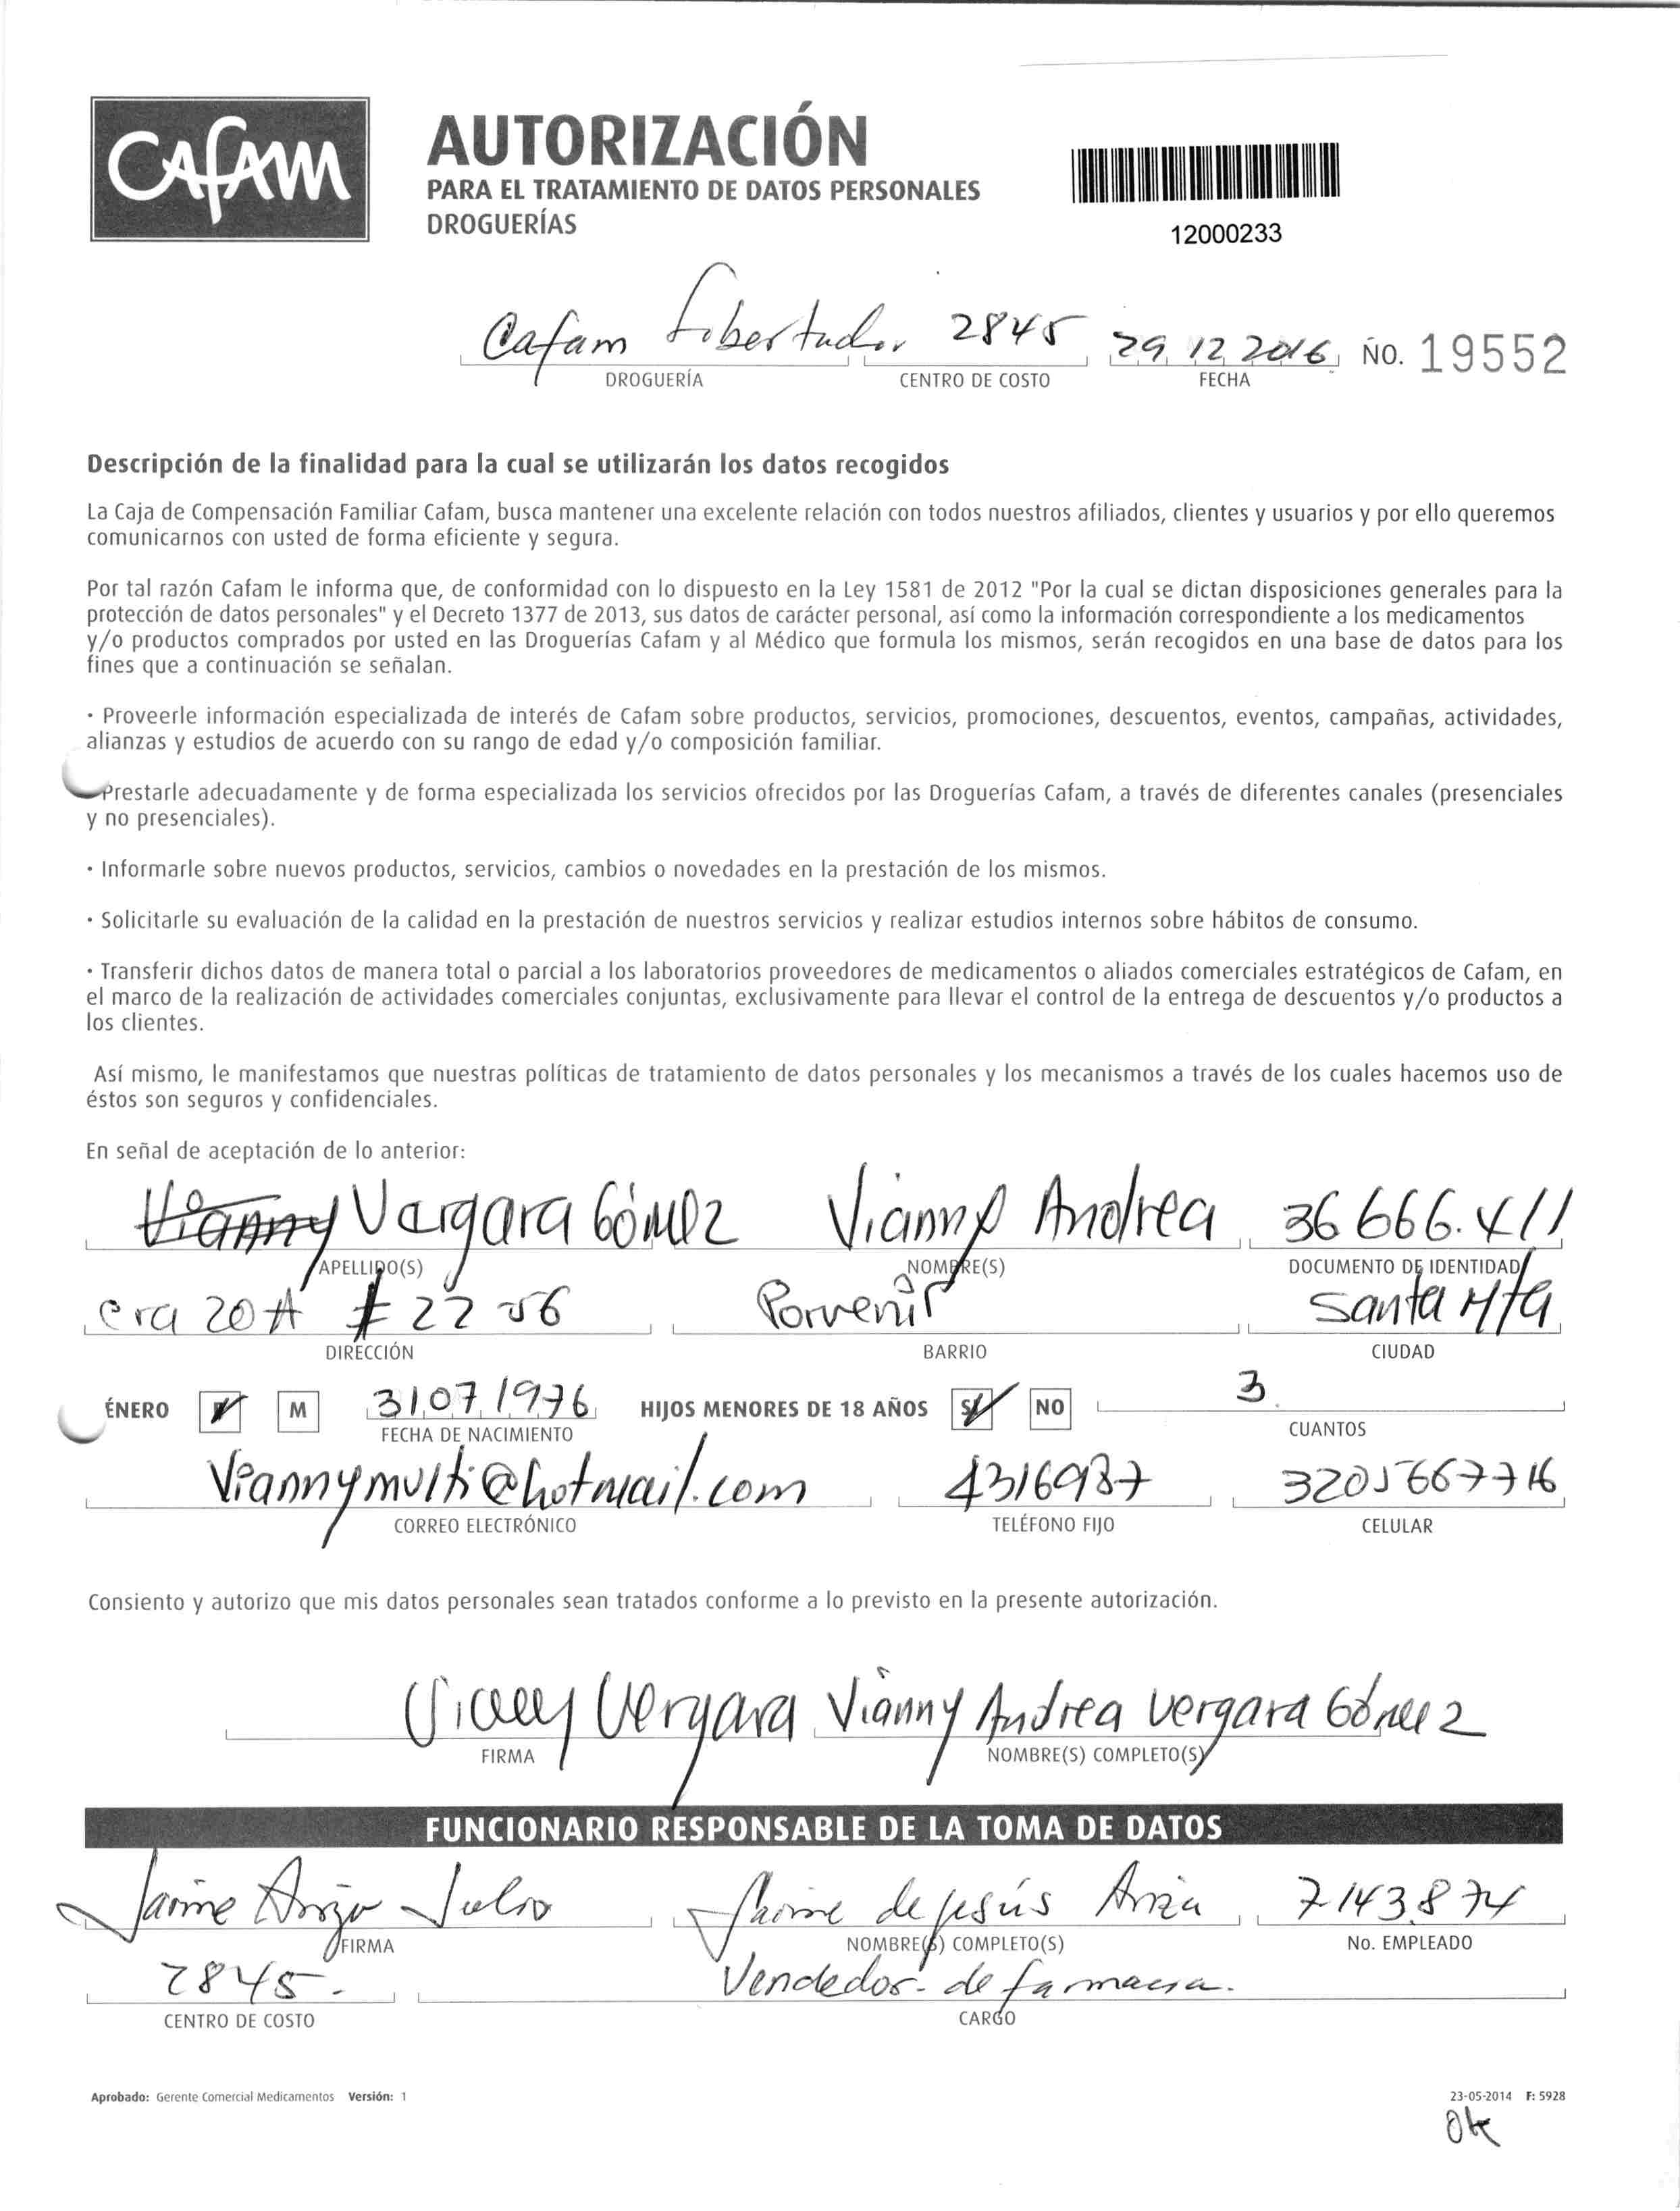 CAFAM
AUTORIZACIÓN
PARA EL TRATAMIENTO DE DATOS PERSONALES
DROGUERÍAS
12000233
Cafam Libertador 2845 29 12 2016 NO. 19552
DROGUERÍA CENTRO DE COSTO FECHA
Descripción de la finalidad para la cual se utilizarán los datos recogidos
La Caja de Compensación Familiar Cafam, busca mantener una excelente relación con todos nuestros afiliados, clientes y usuarios y por ello queremos
comunicarnos con usted de forma eficiente y segura.
Por tal razón Cafam le informa que, de conformidad con lo dispuesto en la Ley 1581 de 2012 "Por la cual se dictan disposiciones generales para la
protección de datos personales" y el Decreto 1377 de 2013, sus datos de carácter personal, así como la información correspondiente a los medicamentos
y/o productos comprados por usted en las Droguerías Cafam y al Médico que formula los mismos, serán recogidos en una base de datos para los
fines que a continuación se señalan.
· Proveerle información especializada de interés de Cafam sobre productos, servicios, promociones, descuentos, eventos, campañas, actividades,
alianzas y estudios de acuerdo con su rango de edad y/o composición familiar.
Prestarle adecuadamente y de forma especializada los servicios ofrecidos por las Droguerías Cafam, a través de diferentes canales (presenciales
y no presenciales).
· Informarle sobre nuevos productos, servicios, cambios o novedades en la prestación de los mismos.
· Solicitarle su evaluación de la calidad en la prestación de nuestros servicios y realizar estudios internos sobre hábitos de consumo.
· Transferir dichos datos de manera total o parcial a los laboratorios proveedores de medicamentos o aliados comerciales estratégicos de Cafam, en
el marco de la realización de actividades comerciales conjuntas, exclusivamente para llevar el control de la entrega de descuentos y/o productos a
los clientes.
Así mismo, le manifestamos que nuestras políticas de tratamiento de datos personales y los mecanismos a través de los cuales hacemos uso de
éstos son seguros y confidenciales.
En señal de aceptación de lo anterior:
Vianny Vergara Gómez Vianny Andrea 36 666.411
APELLIDO(S) NOMBRE(S) DOCUMENTO DE IDENTIDAD
cra 20 A # 22 56 Porvenir Santa Mta
DIRECCIÓN BARRIO CIUDAD
ÉNERO F M 31 07 1976 HIJOS MENORES DE 18 AÑOS SÍ NO 3
FECHA DE NACIMIENTO CUANTOS
Viannymulti@hotmail.com 4316987 3205667716
CORREO ELECTRÓNICO TELÉFONO FIJO CELULAR
Consiento y autorizo que mis datos personales sean tratados conforme a lo previsto en la presente autorización.
Vianny Vergara Vianny Andrea Vergara Gómez
FIRMA NOMBRE(S) COMPLETO(S)
FUNCIONARIO RESPONSABLE DE LA TOMA DE DATOS
Jaime Ariza Julio Jaime de jesús Ariza 7143874
FIRMA NOMBRE(S) COMPLETO(S) No. EMPLEADO
2845. Vendedor de farmacia.
CENTRO DE COSTO CARGO
Aprobado: Gerente Comercial Medicamentos Versión: 1 23-05-2014 F: 5928
Ok